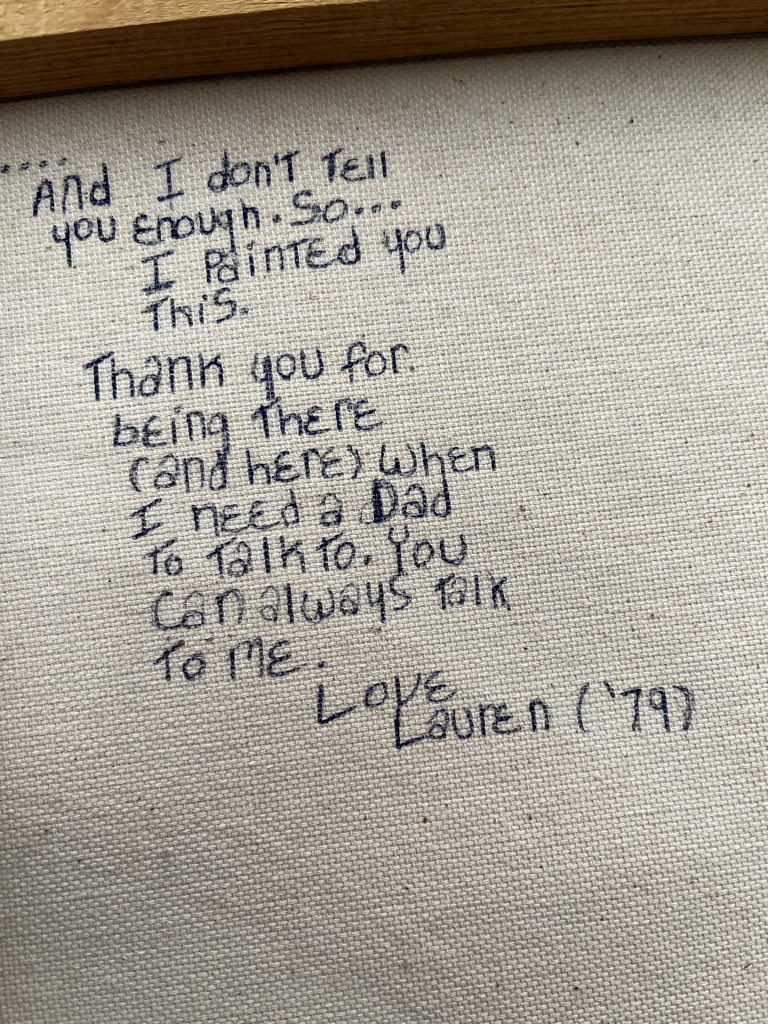 ....And I don't Tell
you Enough. So...
I Painted you
This.
Thank you for.
being There
(and here) when
I need a Dad
To Talk To. You
can always Talk
To me.
Love
Lauren ('79)